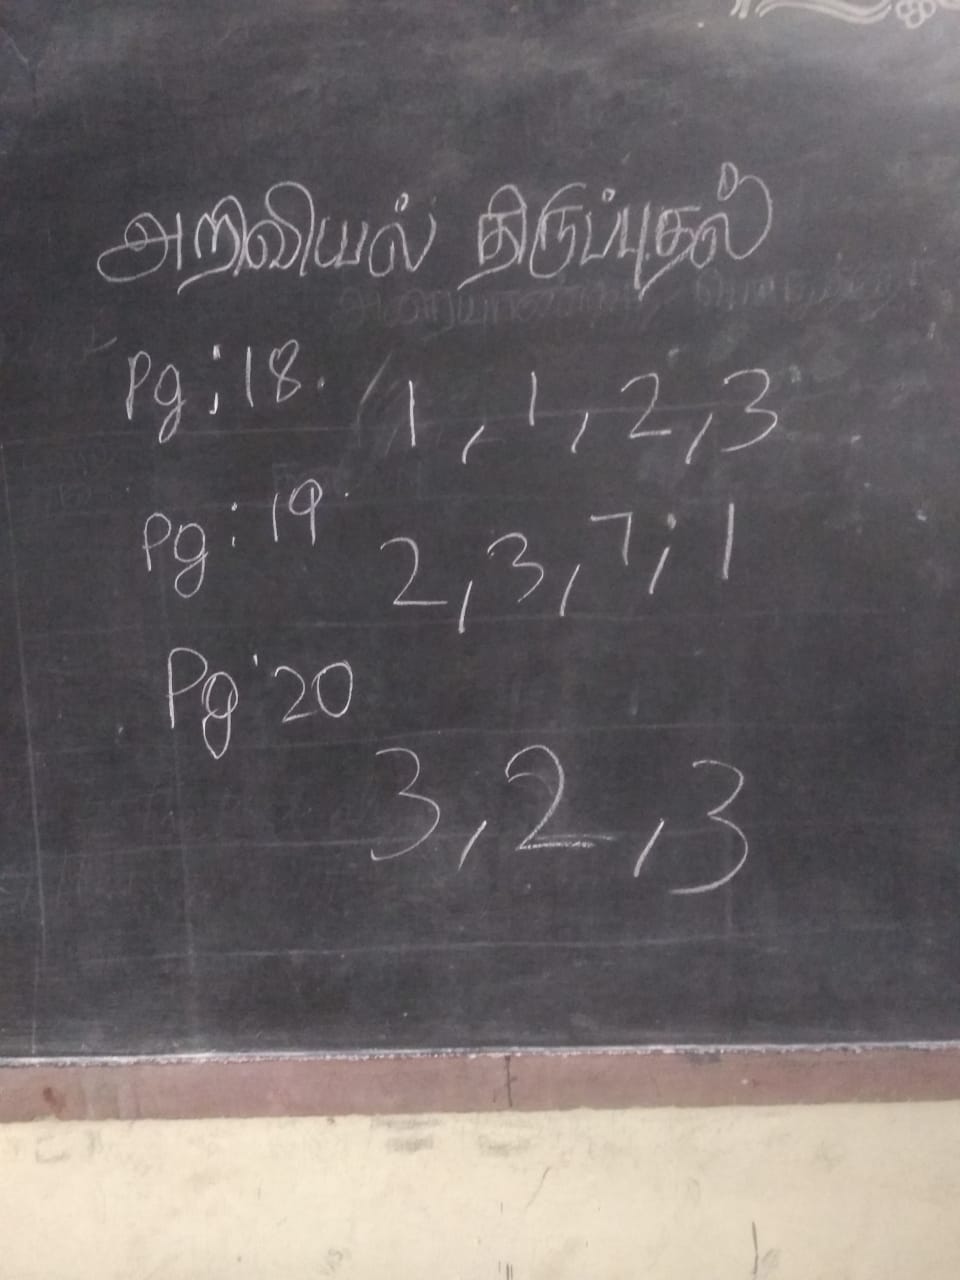 அறிவியல் திருப்புதல்
Pg : 18. 1, 1, 2, 3
Pg : 19. 2, 3, 7, 1
Pg 20
3, 2, 3